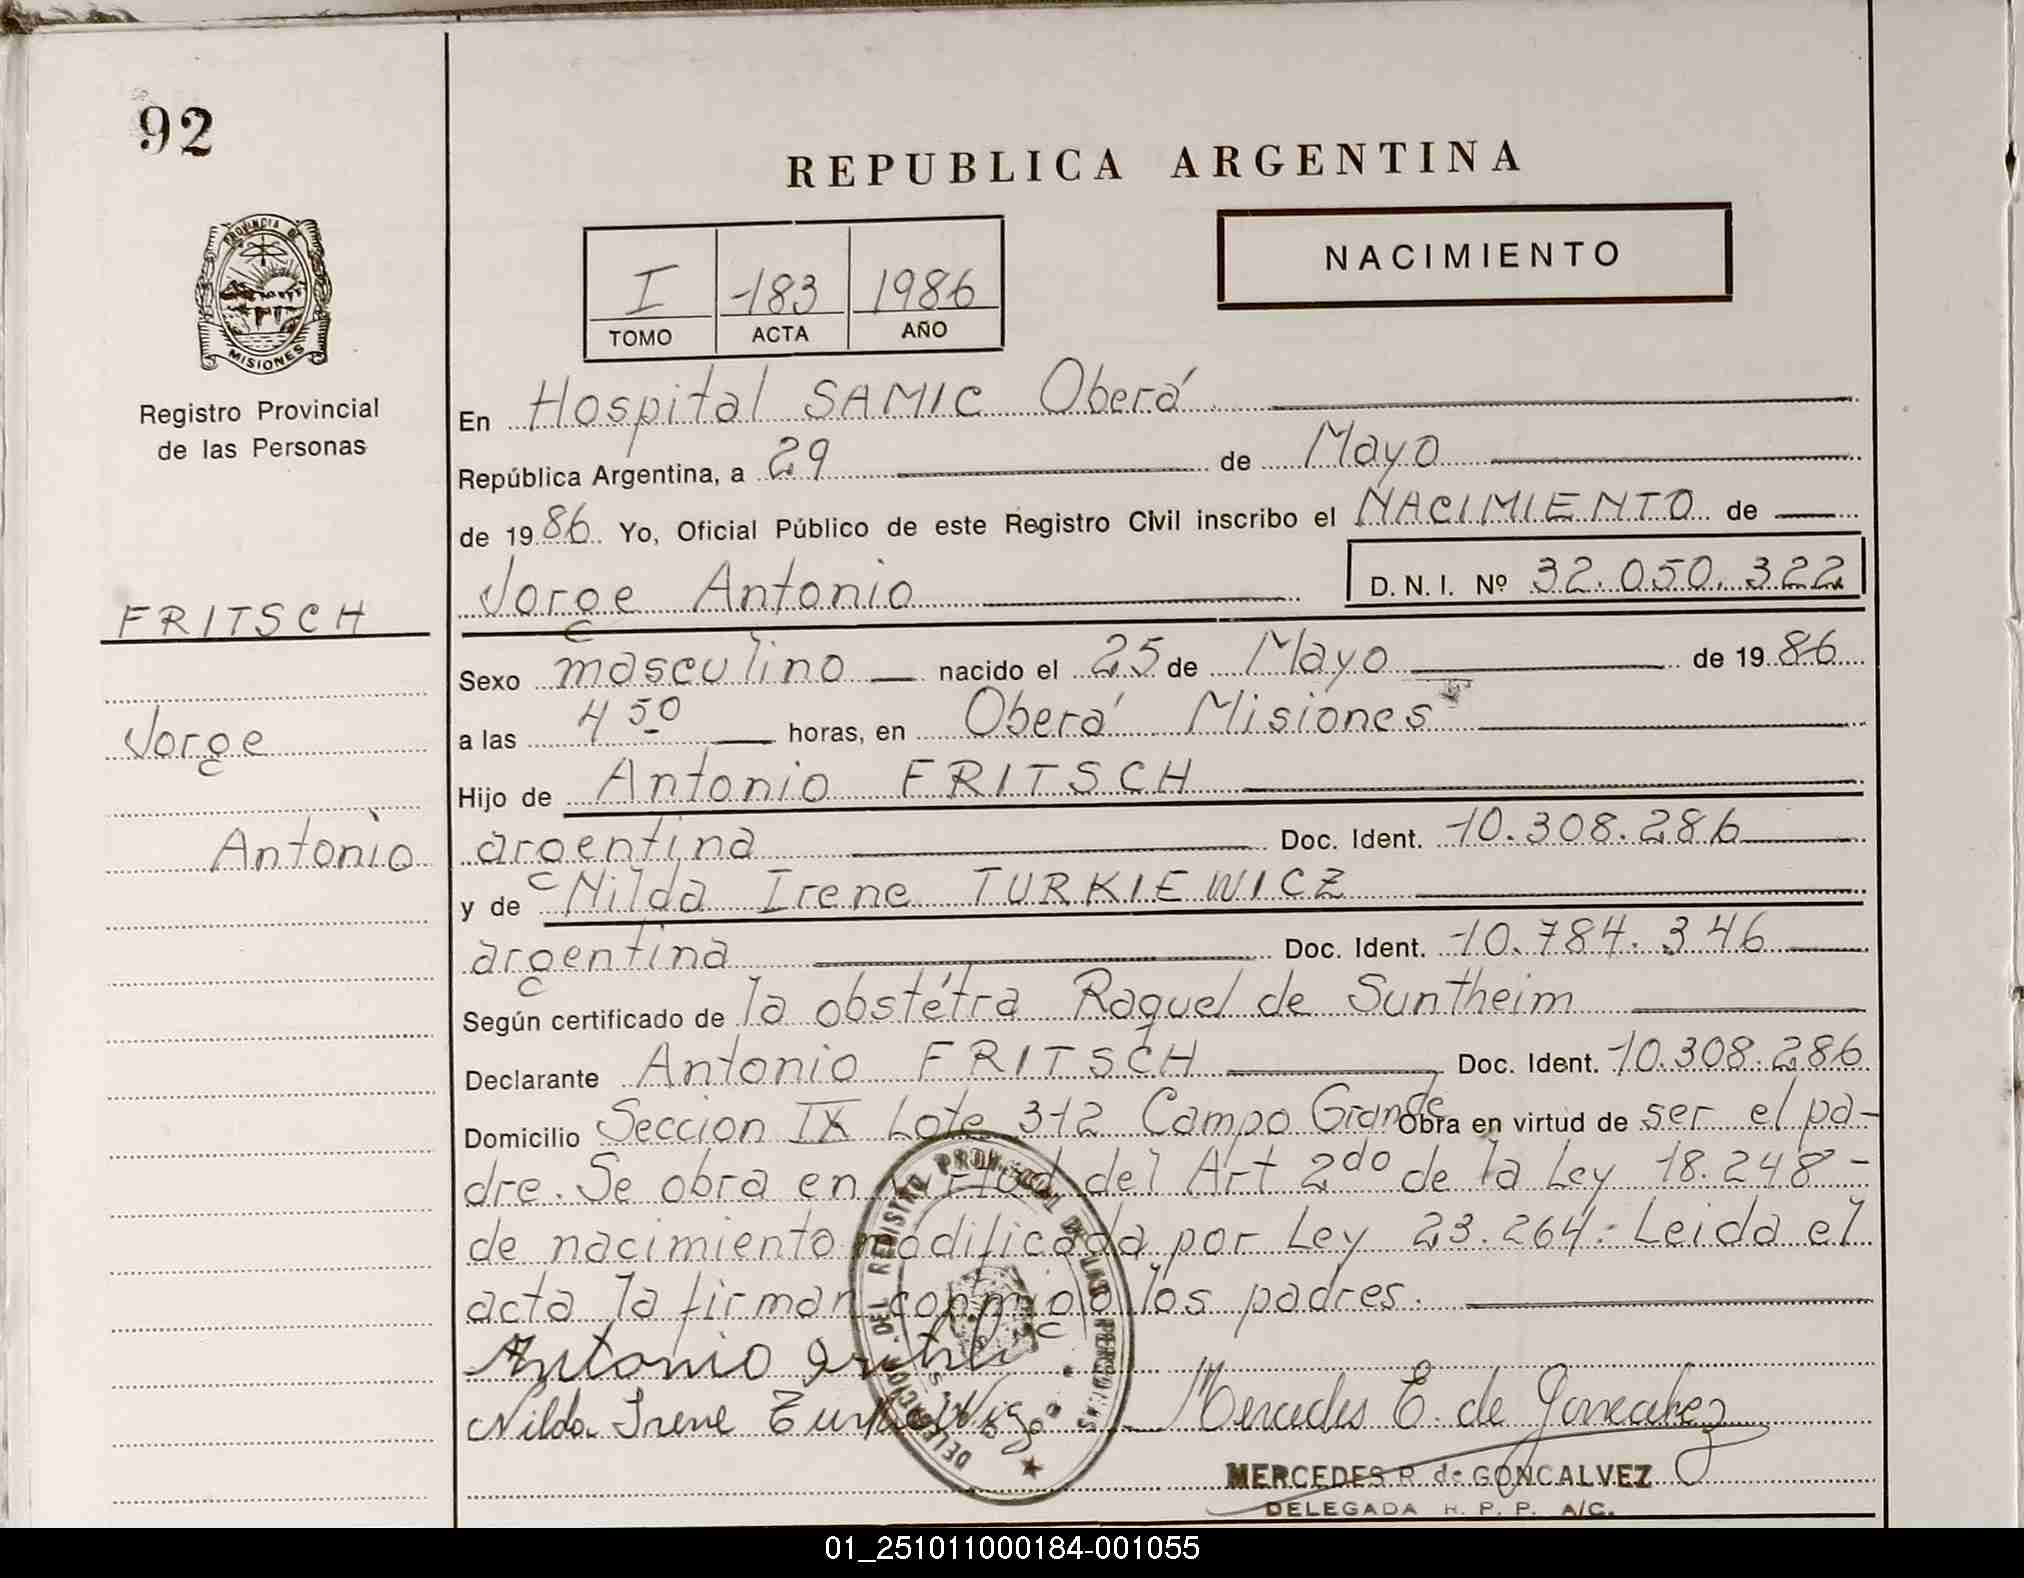 92
REPUBLICA ARGENTINA
NACIMIENTO
I 183 1986
TOMO ACTA AÑO
PROVINCIA DE
MISIONES
Registro Provincial
de las Personas
En Hospital SAMIC Oberá
República Argentina, a 29 de Mayo
de 1986 Yo, Oficial Público de este Registro Civil inscribo el NACIMIENTO de
Jorge Antonio D. N. I. Nº 32.050.322
FRITSCH
Jorge
Antonio
Sexo masculino nacido el 25 de Mayo de 1986
a las 4 50 horas, en Oberá Misiones
Hijo de Antonio FRITSCH
argentina Doc. Ident. 10.308.286
y de Nilda Irene TURKIEWICZ
argentina Doc. Ident. 10.784.346
Según certificado de la obstétra Raquel de Suntheim
Declarante Antonio FRITSCH Doc. Ident. 10.308.286
Domicilio Seccion IX Lote 312 Campo Grande Obra en virtud de ser el pa-
dre. Se obra en virtud del Art 2do de la Ley 18.248-
de nacimiento modificada por Ley 23.264. Leida el
acta la firman conmigo los padres.
Antonio
Nilda Irene
Mercedes E. de
MERCEDES R. de GONCALVEZ
DELEGADA R. P. P. A/C.
DELEGACION DEL REGISTRO PROVINCIAL DE LAS PERSONAS
01_251011000184-001055